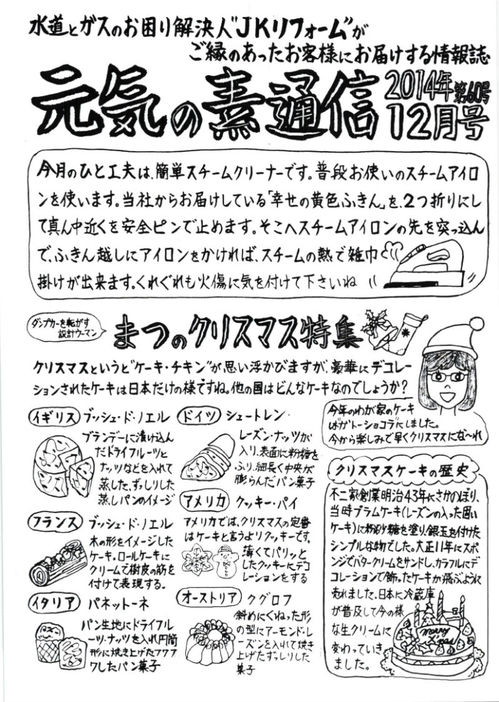 水道とガスのお困り解決人"JKリフォーム"が
ご縁のあったお客様にお届けする情報誌
元気の素通信
2014年 第60号
12月号
今月のひと工夫は、簡単スチームクリーナーです。普段お使いのスチームアイロ
ンを使います。当社からお届けしている「幸せの黄色ふきん」を、2つ折りにし
て真ん中近くを安全ピンで止めます。そこへスチームアイロンの先を突っ込ん
で、ふきん越しにアイロンをかければ、スチームの熱で雑巾
掛けが出来ます。くれぐれも火傷に気を付けて下さいね
ダンプカーを転がす
設計ウーマン
まつのクリスマス特集
クリスマスというと"ケーキ・チキン"が思い浮かびますが、豪華にデコレー
ションされたケーキは日本だけの様ですね。他の国はどんなケーキなのでしょうか?
イギリス ブッシュ・ド・ノエル
ブランデーに漬け込ん
だドライフルーツと
ナッツなどを入れて
蒸した、ずっしりした
蒸しパンのイメージ
フランス ブッシュ・ド・ノエル
木の形をイメージした
ケーキ。ロールケーキに
クリームで樹皮の筋を
付けて表現する。
イタリア パネットーネ
パン生地にドライフル
ーツ、ナッツを入れ円筒
形に焼き上げたフワフ
ワしたパン菓子
ドイツ シュートレン
レーズン・ナッツが
入り、表面に粉糖を
ふり、細長く中央が
膨らんだパン菓子
アメリカ クッキー・パイ
アメリカでは、クリスマスの定番
はケーキと言うよりクッキーです。
薄くてパリッと
したクッキーに
デコレーションをする
オーストリア クグロフ
斜めにくねった形
の型にアーモンド・レ
ーズンを入れて焼き
上げたずっしりした
菓子
今年のわが家のケーキ
はガトーショコラにしました。
今から楽しみで早くクリスマスにな〜れ
クリスマスケーキの歴史
不二家創業明治43年にさかのぼり、
当時プラムケーキ(レーズンの入った固い
ケーキ)に粉砂糖を塗り、銀玉を付けた
シンプルな物でした。大正11年にスポ
ンジでバタークリームをサンドし、カラフルにデ
コレーションで飾ったケーキが飛ぶように
売れました。日本に冷蔵庫
が普及して今の様
な生クリームに
変わっていき
ました。
Merry
Xmas